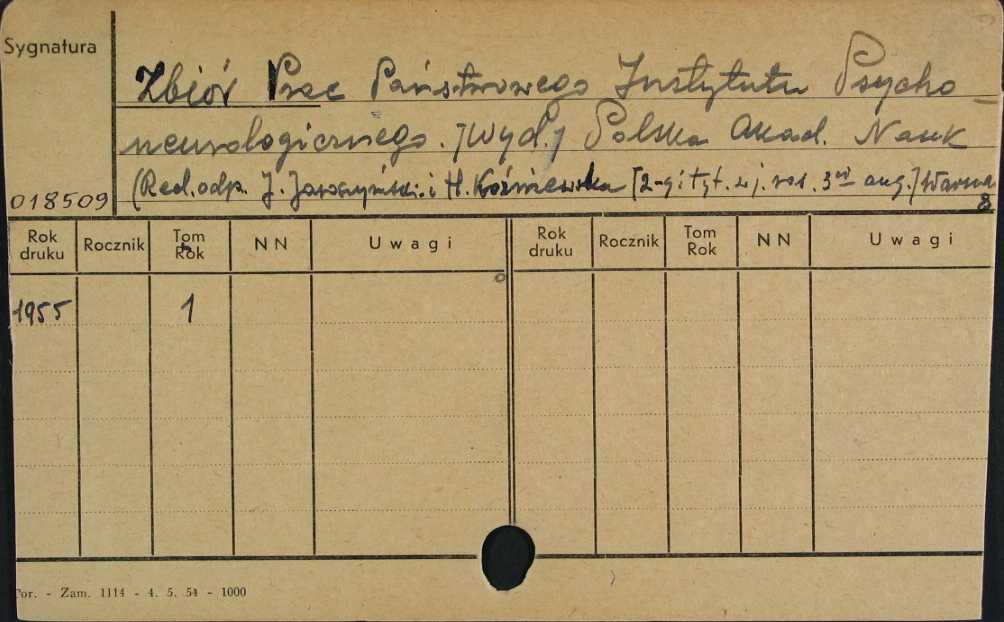 Sygnatura
Zbiór Prac Państwowego Instytutu Psycho-
neurologicznego. /Wyd./ Polska Akad. Nauk
(Red. odp. J. i H. Koźniewska [2-gi tyt. w j. ros. 3ci ang.]
8
018509
Rok druku Rocznik Tom Rok NN Uwagi Rok druku Rocznik Tom Rok NN Uwagi
1955 1
Zam. 1114 - 4. 5. 54 - 1000